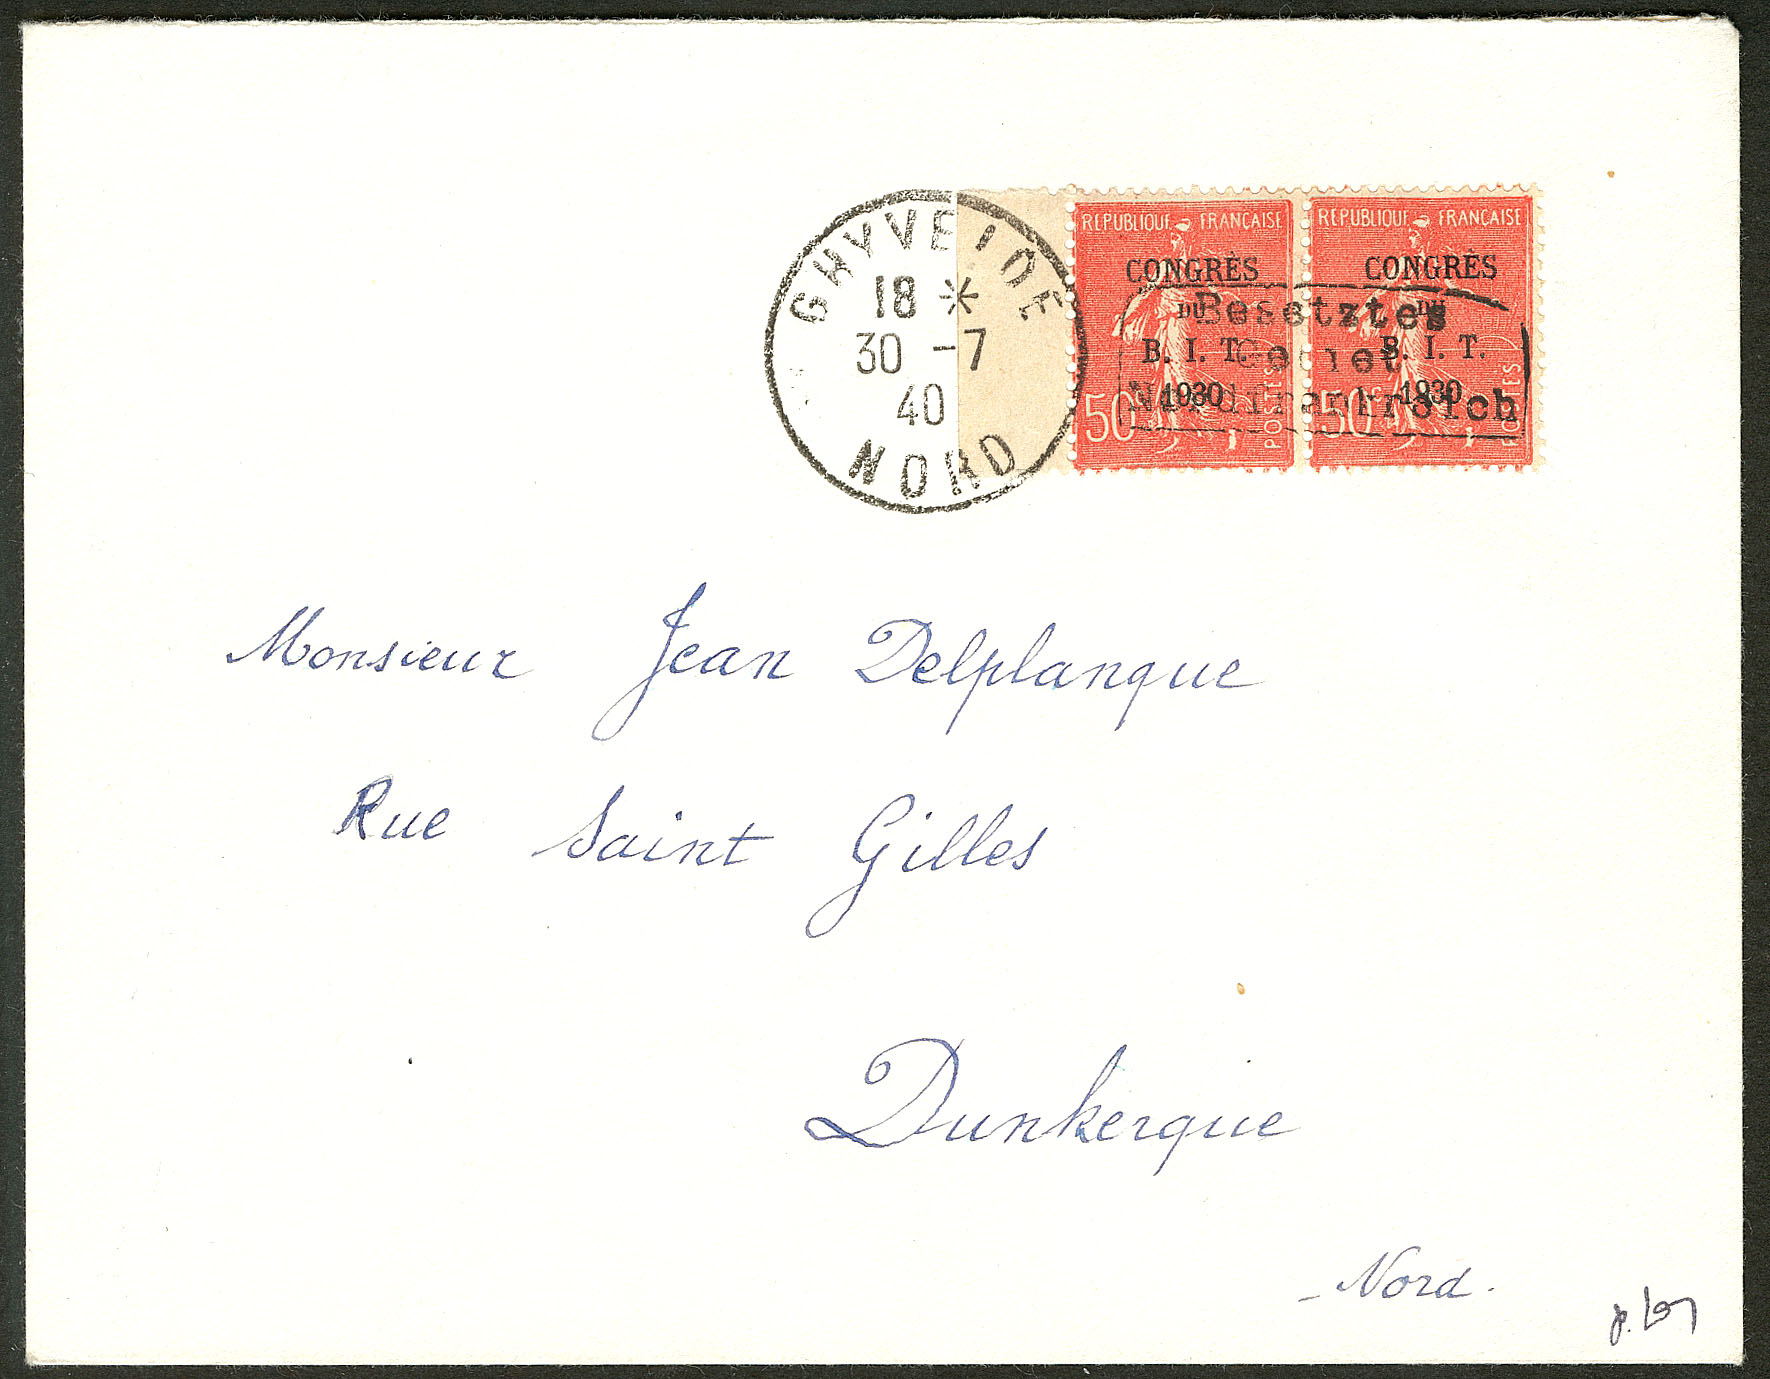 GHYVELDE
18 *
30 -7
40
NORD
REPUBLIQUE FRANÇAISE
CONGRÈS
DU
B. I. T.
1930
50c
POSTES
REPUBLIQUE FRANÇAISE
CONGRÈS
DU
B. I. T.
1930
50c
POSTES
Besetztes
Gebiet
Nordfrankreich
Monsieur Jean Delplanque
Rue Saint Gilles
Dunkerque
- Nord.